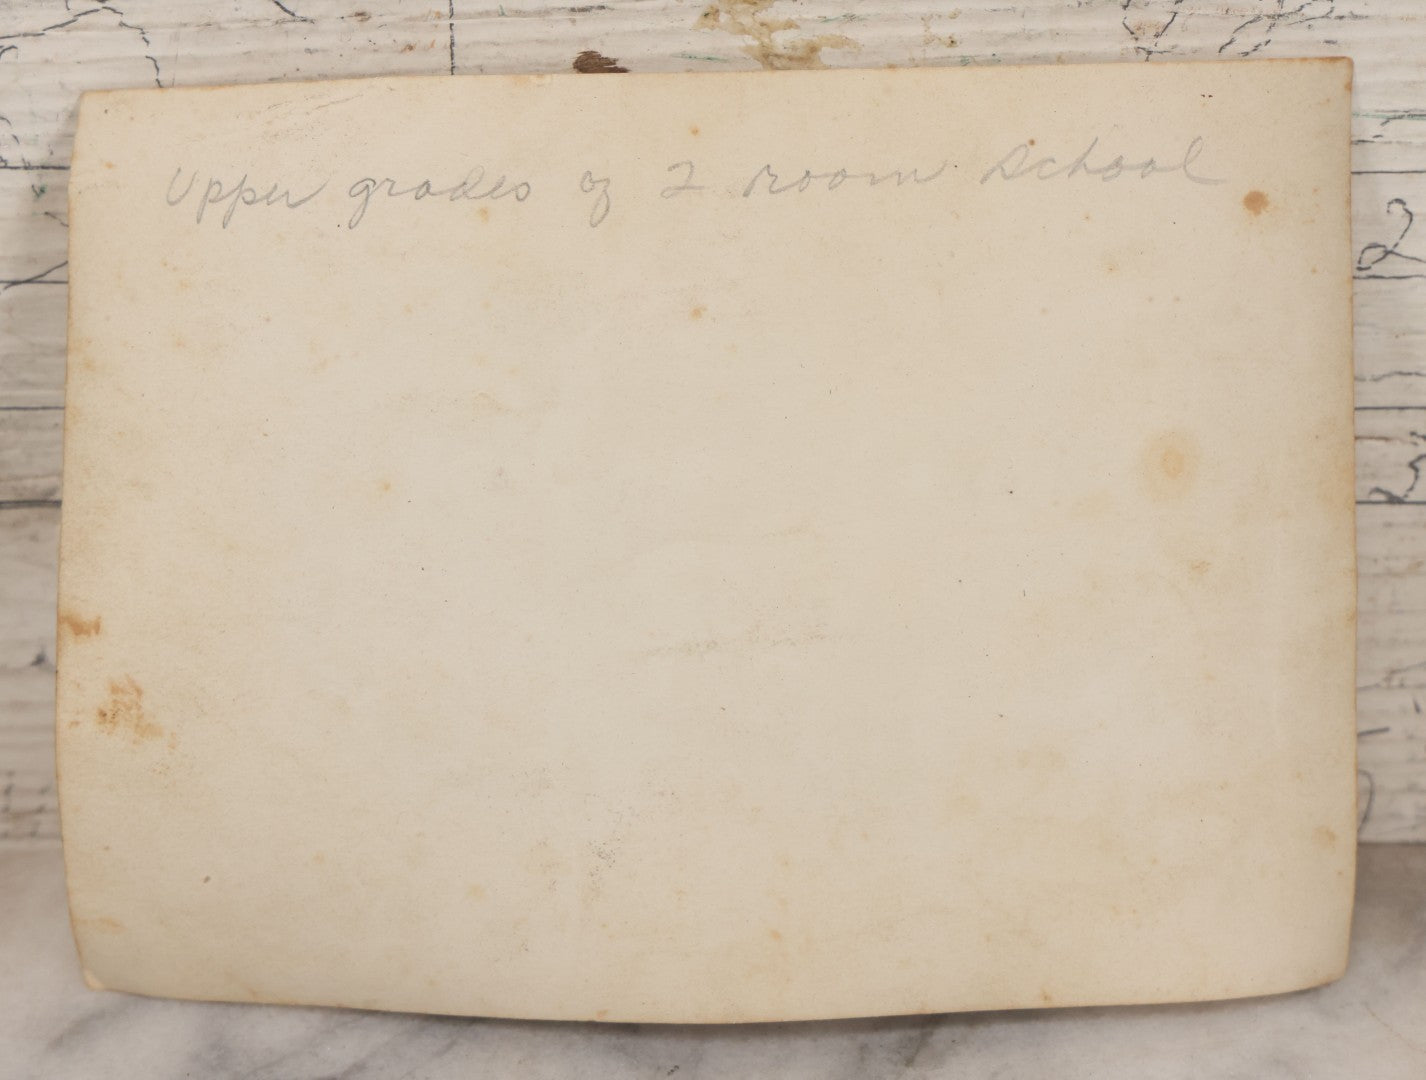 Upper grades of 2 room school
2